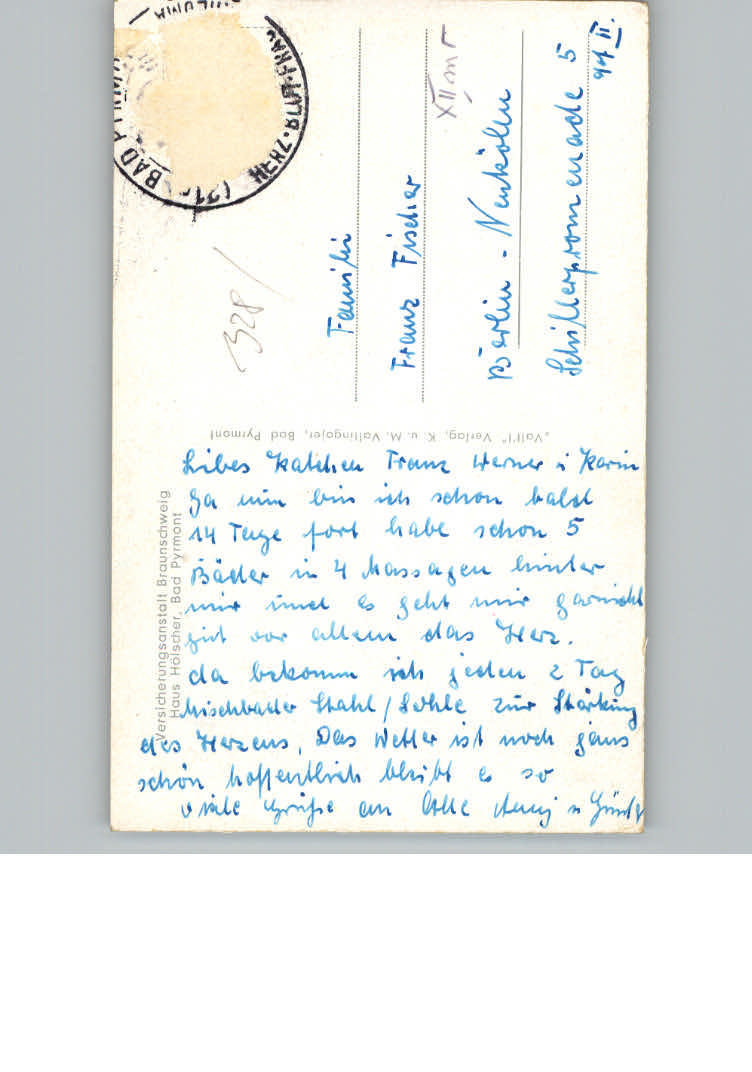 BAD PYRMONT
HERZ·BLUT·FRAU
(21
328/
XII
Familie
Franz Fischer
Berlin - Neukölln
Schillerpromenade 5
II.
"Valli" Verlag, K. u. M. Vallingojer, Bad Pyrmont
Versicherungsanstalt Braunschweig
Haus Hölscher, Bad Pyrmont
Libes Katchen Franz Werner u Karin
Ja nun bin ich schon bald
14 Tage fort habe schon 5
Bäder u 4 Massagen hinter
mir und es geht mir garnicht
gut vor allem das Herz.
da bekomm ich jeden 2 Tag
Mischbader Stahl/Sohle zur Stärkung
des Herzens, Das Wetter ist noch ganz
schön hoffentlich bleibt es so
viele Grüße an Alle u